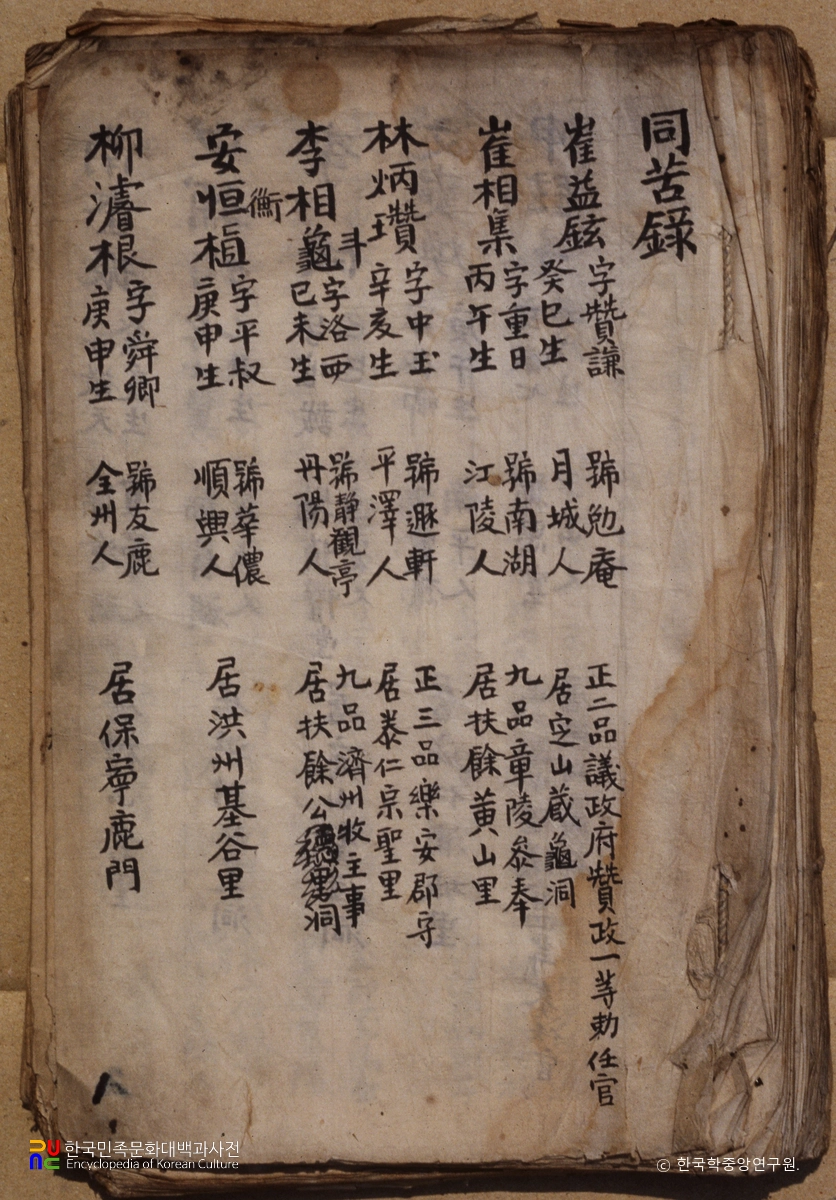 同苦錄
崔益鉉 字贊謙 號勉庵 正二品議政府贊政一等勅任官
癸巳生 月城人 居定山蔵龜洞
崔相集 字重日 號南湖 九品章陵叅奉
丙午生 江陵人 居扶餘黃山里
林炳瓚 字中玉 號遯軒 正三品樂安郡守
辛亥生 平澤人 居泰仁宗聖里
李相龜 斗 字洛西 號静觀亭 九品濟州牧主事
己未生 丹陽人 居扶餘公洞
安恒植 衡 字平叔 號華儂 居洪州基谷里
庚申生 順興人
柳濬根 字舜卿 號友鹿 居保寧鹿門
庚申生 全州人
한국민족문화대백과사전
Encyclopedia of Korean Culture
© 한국학중앙연구원.